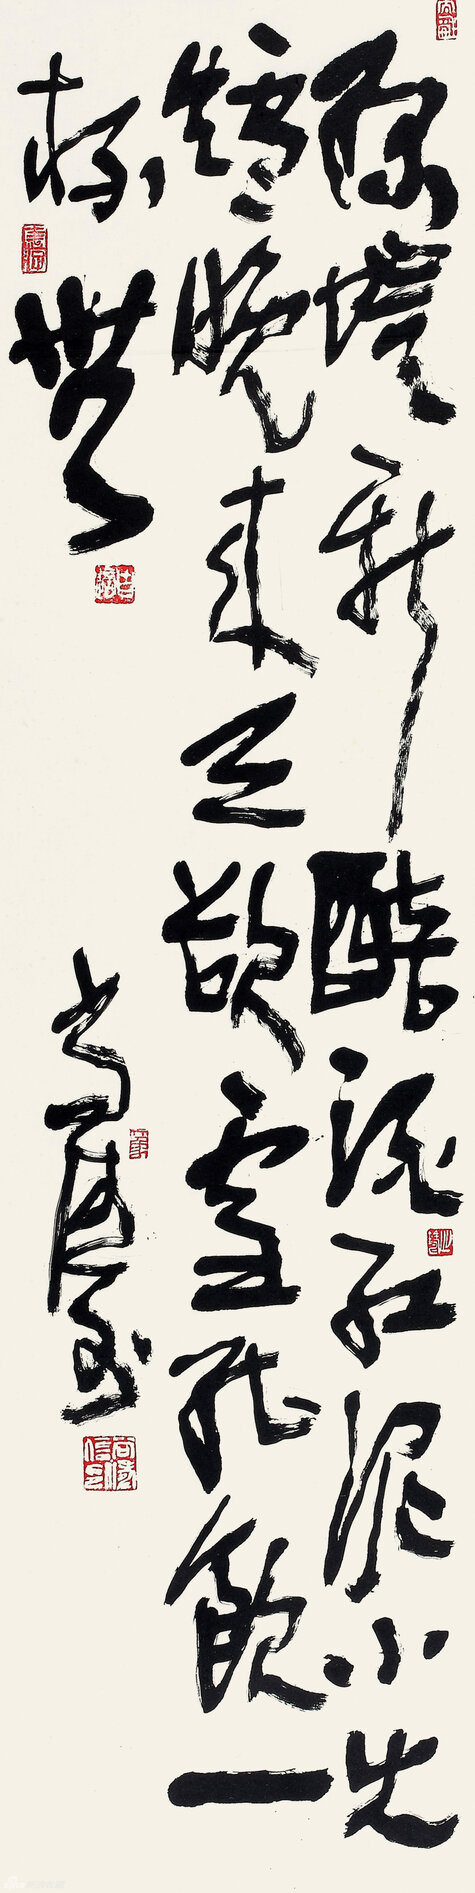 綠螘新醅酒紅泥小火
爐晚來天欲雪能飲一
杯無
尚濤